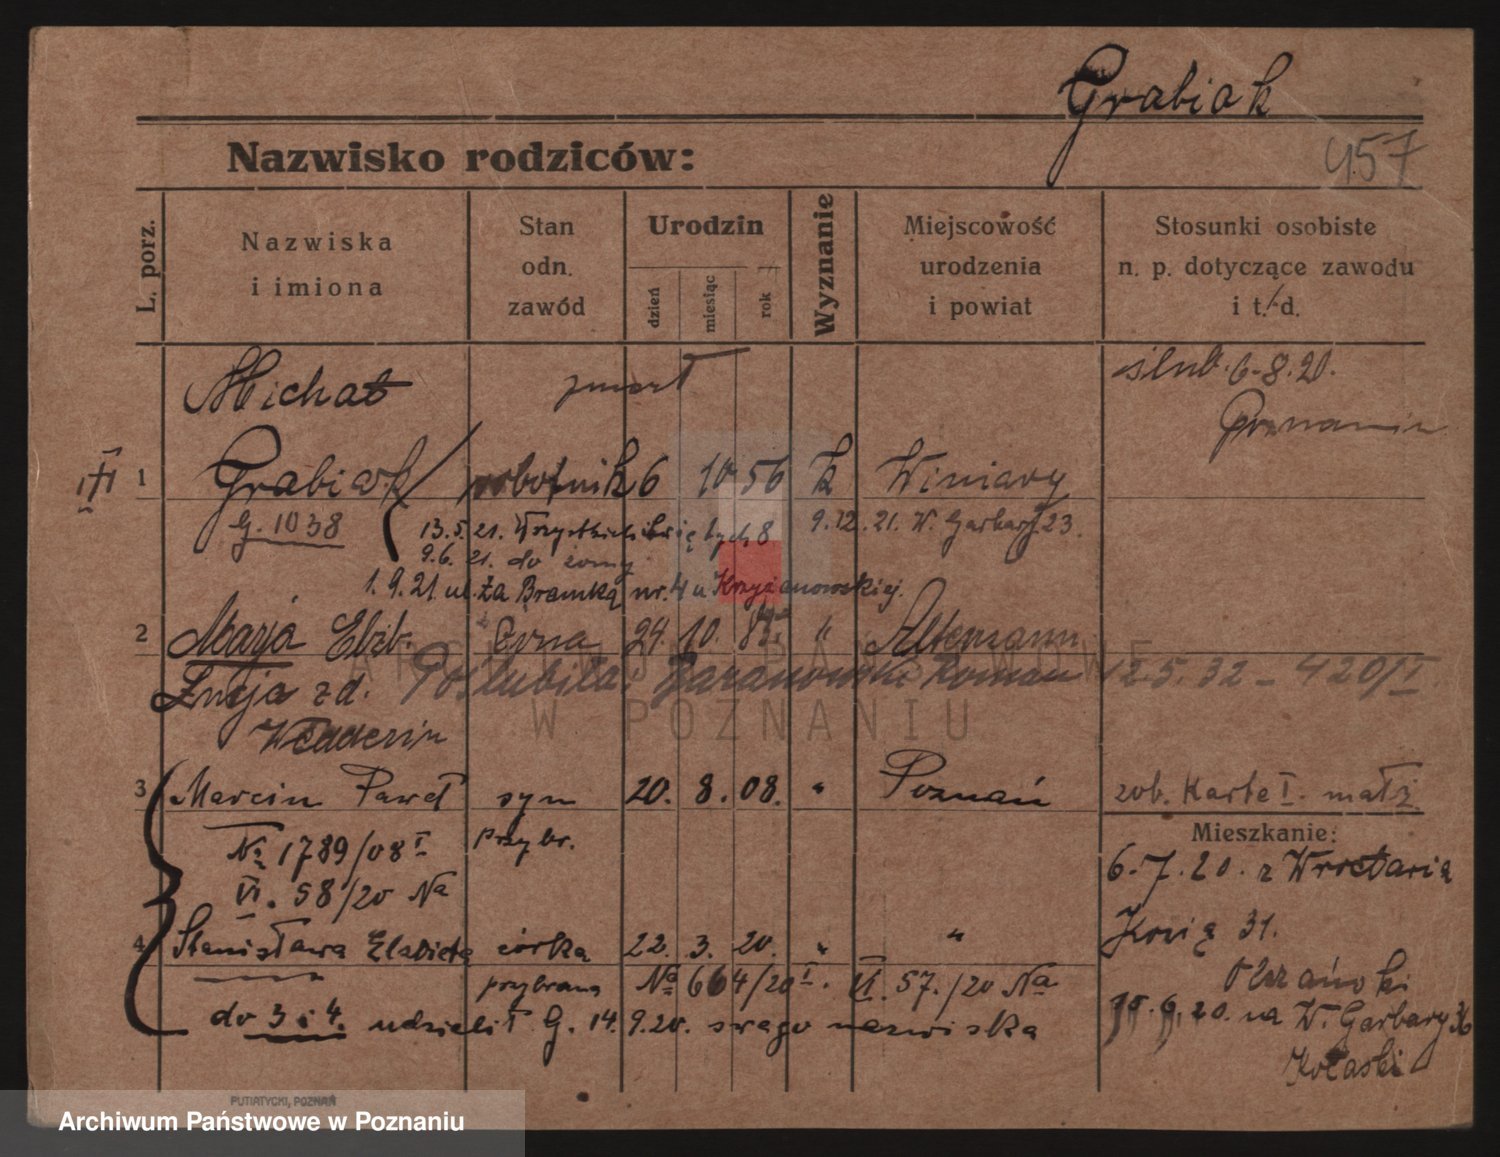 Grabiak
457
Nazwisko rodziców:
L. porz.
Nazwiska
i imiona
Stan
odn.
zawód
Urodzin
dzień
miesiąc
rok
Wyznanie
Miejscowość
urodzenia
i powiat
Stosunki osobiste
n. p. dotyczące zawodu
i t. d.
Michał zmarł ślub. 6.8.20.
Poznaniu
1 Grabiak robotnik 6 10 56 k Winiary
G. 1038 13.5.21. Wszystkich Świętych 8 9.12.21. W. Garbary 23.
9.6.21. do żony
1.9.21 ul. Za Bramką nr. 4 u Krzyżanowskiej.
2 Marja Elżb. żona 24. 10. "
Łucja z d. Poślubiła: Baranowski Roman 12.5.32 - 420/I.
3 Marcin Paweł syn 20. 8. 08. " Poznań zob. Karte I. małż.
Nr 1789/08 I przybr.
Mieszkanie:
VI. 58/20 Na
6.7.20. z Wrocławia
4 Stanisława Elżbieta córka 22. 3. 20. " "
31.
przybrana Na 664/20 I. VI. 57./20 Na
do 3 i 4. udzielił G. 14.9.20. swego nazwiska
15.9.20. na W. Garbary 36
PUTIATYCKI, POZNAŃ
ARCHIWUM PAŃSTWOWE
W POZNANIU
Archiwum Państwowe w Poznaniu